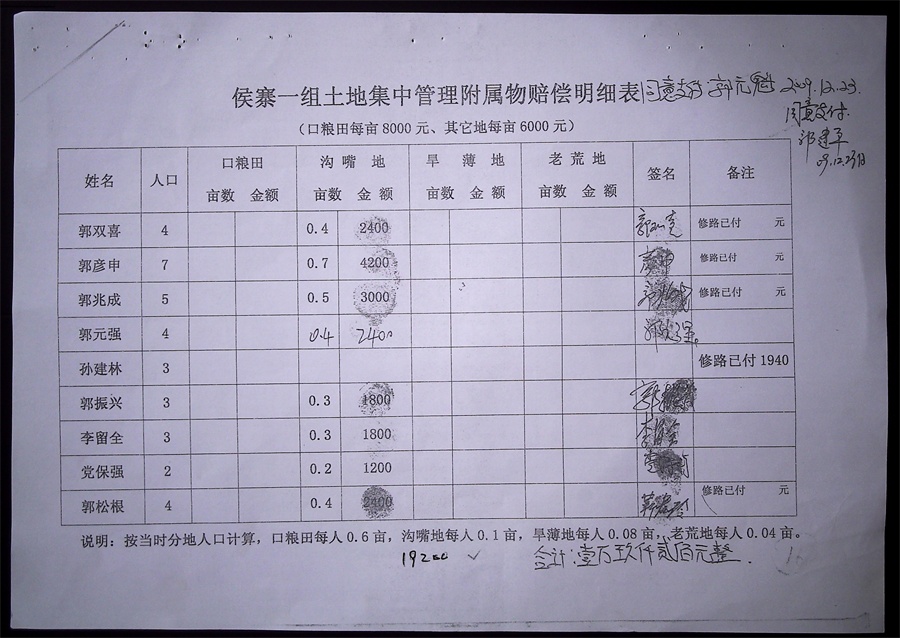 侯寨一组土地集中管理附属物赔偿明细表 同意支付 郭元魁 2009.12.23.
同意支付.
郭建平
09.12.23日
（口粮田每亩 8000 元、其它地每亩 6000 元）
姓名 人口 口粮田 沟嘴地 旱薄地 老荒地 签名 备注
亩数 金额 亩数 金额 亩数 金额 亩数 金额
郭双喜 4 0.4 2400 修路已付 元
郭彦申 7 0.7 4200 修路已付 元
郭兆成 5 0.5 3000 修路已付 元
郭元强 4 0.4 2400
孙建林 3 修路已付 1940
郭振兴 3 0.3 1800
李留全 3 0.3 1800 李留全
党保强 2 0.2 1200
郭松根 4 0.4 2400 修路已付 元
说明：按当时分地人口计算，口粮田每人 0.6 亩，沟嘴地每人 0.1 亩，旱薄地每人 0.08 亩，老荒地每人 0.04 亩。
19200 ✓ 合计：壹万玖仟贰佰元整.